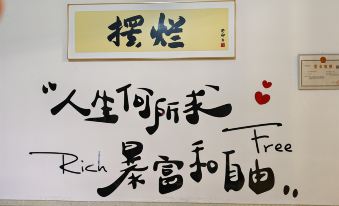 摆烂
“人生何所求
Free
Rich 暴富和自由”